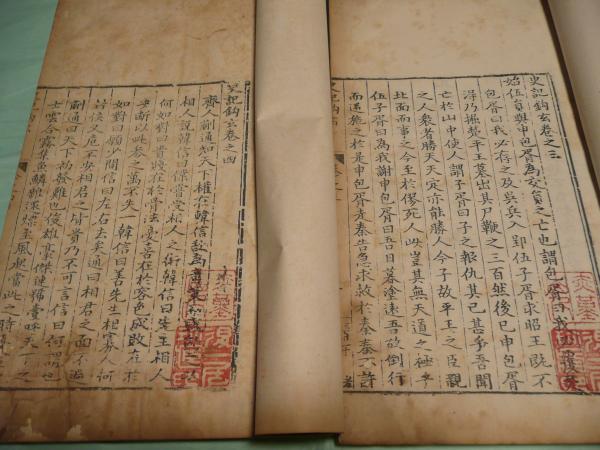 史記鈎玄卷之三
始伍員與申包胥為交員之亡也謂包胥曰我必覆楚
包胥曰我必存之及吳兵入郢伍子胥求昭王既不
得乃掘楚平王墓出其尸鞭之三百然後已申包胥
亡於山中使人謂子胥曰子之報仇其已甚乎吾聞
之人衆者勝天天定亦能勝人今子故平王之臣親
北面而事之今至於僇死人此豈其無天道之極乎
伍子胥曰為我謝申包胥曰吾日暮塗遠吾故倒行
而逆施之於是申包胥走秦告急求救於秦秦不許
史記鈎玄卷之四
齊人蒯通知天下權在韓信欲為奇策而感動之以
相人說韓信曰僕嘗受相人之術韓信曰先生相人
何如對曰貴賤在於骨法憂喜在於容色成敗在於
決斷以此參之萬不失一韓信曰善先生相寡人何
如對曰願少間信曰左右去矣通曰相君之面不過
封侯又危不安相君之背貴乃不可言信曰何謂也
蒯通曰天下初發難也俊雄豪傑連號壹呼天下之
士雲合霧集魚鱗雜遝熛至風起當此之時